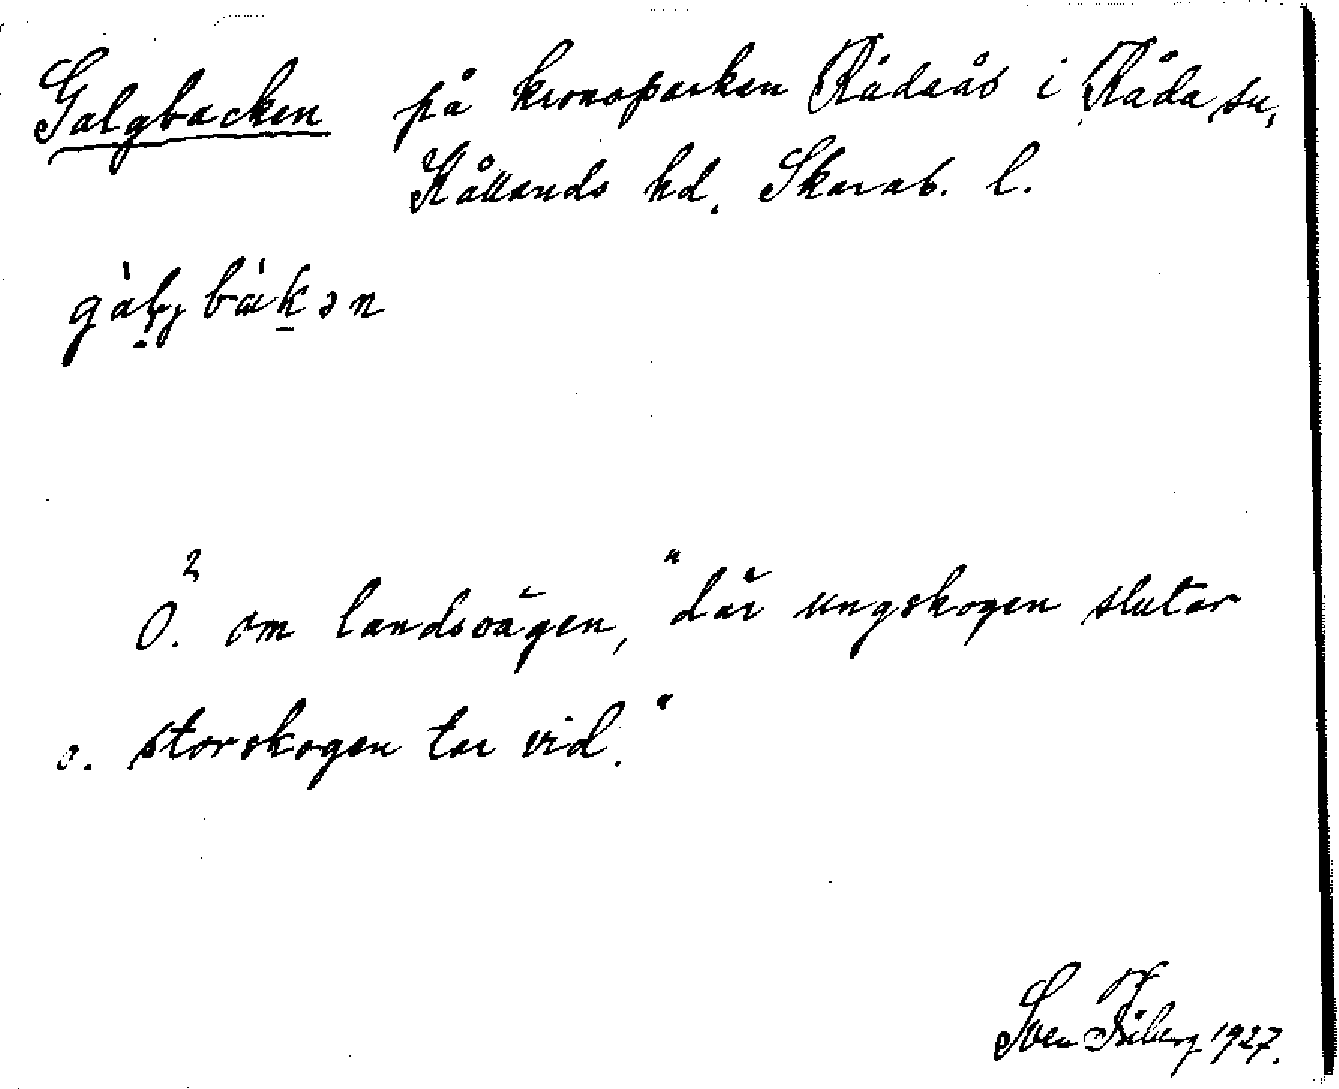 Galgbacken på kronoparken Rådaås i Råda sn,
Kållands hd. Skarab. l.
gàlgbàkən
Ö. om landsvägen, "där ungskogen slutar
o. storskogen tar vid."
Sven 1927.